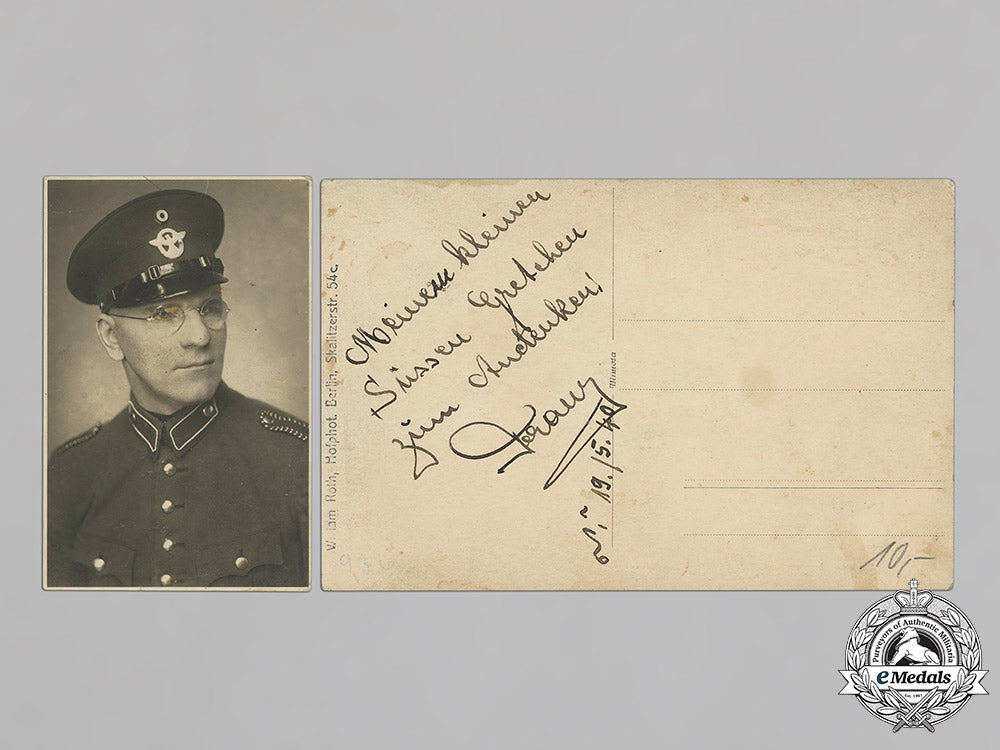 Meinem kleinen
Süssen Gretchen
zum Andenken!
Franz
19./5.40
W   iam Roth, Hofphot. Berlin, Skalitzerstr. 54c.
Mimosa
10,-
Purveyors of Authentic Militaria
eMedals